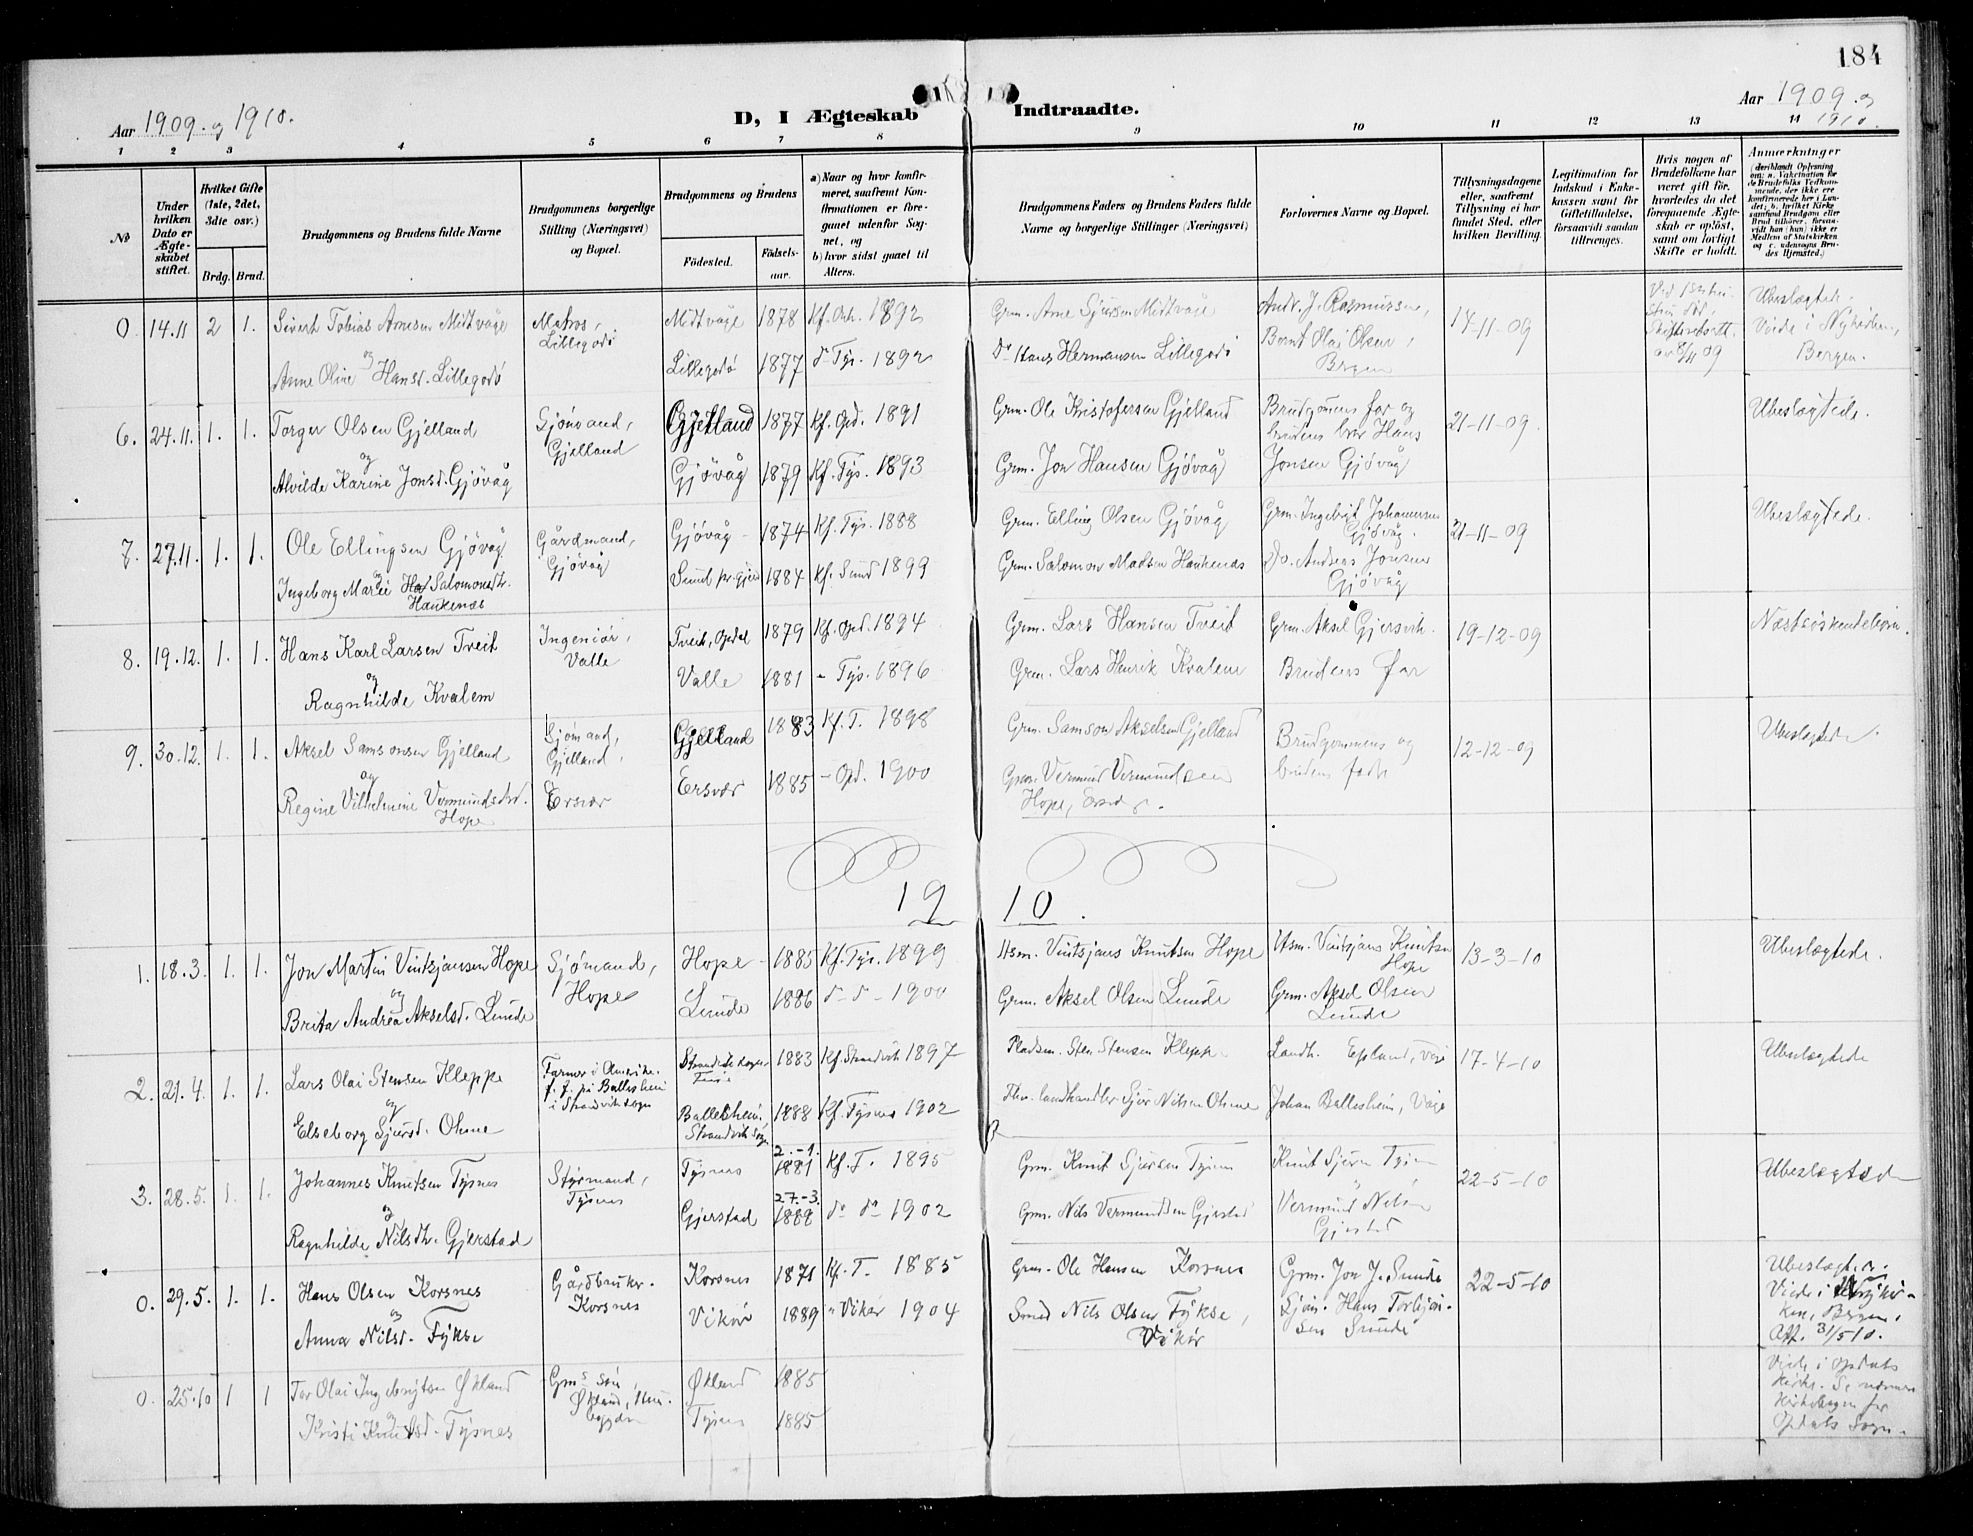 184
Aar 1909 og 1910.
D, I Ægteskab Indtraadte.
Aar 1909 og 1910.
1 2 3 4 5 6 7 8 9 10 11 12 13 14
No
Under hvilken Dato er Ægteskabet stiftet.
Hvilket Gifte (1ste, 2det, 3die osv.)
Brdg. Brud.
Brudgommens og Brudens fulde Navne
Brudgommens borgerlige Stilling (Næringsvei) og Bopæl.
Brudgommens og Brudens
Födested. Födselsaar.
a) Naar og hvor konfirmeret, saafremt Konfirmationen er foregaaet udenfor Sognet, og
b) hvor sidst gaaet til Alters.
Brudgommens Faders og Brudens Faders fulde Navne og borgerlige Stillinger (Næringsvei)
Forlovernes Navne og Bopæl.
Tillysningsdagene eller, saafremt Tillysning ei har fundet Sted, efter hvilken Bevilling.
Legitimation for Indskud i Enkekassen samt for Giftetilladelse, forsaavidt saadan tiltrænges.
Hvis nogen af Brudefolkene har været gift för, hvorledes da det foregaaende Ægteskab er oplöst, samt om lovligt Skifte er holdt.
Anmærkninger
0. 14.11 2 1. Sivert Tobias Arnesen Midtvåge Matros, Lillegodö Midtvåge 1878 Kf. 1892 Grm. Arne Sjursen Midtvåge Andr. J. Rasmussen, 14-11-09 Ubeslægtede.
og Anne Oline Hansd. Lillegodö Lillegodö 1877 do Tys. 1892 do Hans Hermansen Lillegodö Bernt Olai Olsen, Bergen Viede i Nykirken, Bergen.
6. 24.11. 1. 1. Torger Olsen Gjelland Sjömand, Gjelland Gjelland 1877 Kf. Opd. 1891 Grm. Ole Kristofersen Gjelland Brudgomens far og 21-11-09. Ubeslægtede.
og Alvilde Karine Jonsd. Gjövåg Gjövåg 1879 Kf. Tys. 1893 Grm. Jon Hansen Gjövåg brudens bror Hans Jonsen Gjövåg
7. 27.11. 1. 1. Ole Ellingsen Gjövåg Gårdmand, Gjövåg Gjövåg 1874 Kf. Tys. 1888 Grm. Elling Olsen Gjövåg Grm. Ingebrigt Johannesen Gjövåg. 21-11-09 Ubeslægtede.
og Ingeborg Marie Salomonsdtr. Haukenæs Sund 1884 Kf. Sund 1899 Grm. Salomon Madsen Haukenæs Do. Andreas Jonsen Gjövåg
8. 19.12. 1. 1. Hans Karl Larsen Tveit Ingeniör, Valle Tveit, Opdal 1879 Kf. Opd. 1894 Grm. Lars Hansen Tveit Grm. Aksel Gjersvik. 19-12-09
og Ragnhilde Kvalem Valle 1881 " Tys. 1896 Grm. Lars Henrik Kvalem Brudens far
9. 30.12. 1. 1. Aksel Samsonsen Gjelland Sjömand, Gjelland, Gjelland 1883 Kf. T. 1898 Grm. Samson Akselsen Gjelland Brudgommens og brudens fædre 12-12-09 Ubeslægtede.
og Regine Vilhelmine Vermundsdtr. Hope Ersvær Ersvær 1885 - Opd. 1900 Grm. Vermund Vermundsen Hope,
1910.
1. 18.3. 1. 1. Jon Martin Vintsjansen Hope Sjömand, Hope Hope 1885 Kf. Tys. 1899 Hsm. Vintsjans Knutsen Hope Hsm. Vintsjans Knutsen Hope 13-3-10 Ubeslægtede.
og Brita Andrea Akselsd. Lunde Lunde 1886 d- d- 1900 Grm. Aksel Olsen Lunde Grm. Aksel Olsen Lunde
2. 21.4. 1. 1. Lars Olai Stensen Kleppe Farmer i Amerika. f. f. på Ballesheim i Strandvik sogn 1883 Kf. Strandvik 1897 Pladsm. Sten Stensen Kleppe Landh. Epland, Våge 17-4-10 Ubeslægtede
og Elseborg Sjursd. Ohme Ballesheim, Strandvik sogn 1888 Kf. Tysnes 1902 Fhv. landhandler Sjur Nilsen Ohme Johan Ballesheim, Våge
3. 28.5. 1. 1. Johannes Knutsen Tysnes Styrmand, Tysnes Tysnes 2.-1. 1881 Kf. T. 1895 Grm. Knut Sjursen Tysnes Knut Sjursen Tysnes 22-5-10 Ubeslægtede
og Ragnhilde Nilsdtr. Gjerstad Gjerstad 27.-3. 1888 do do 1902 Grm. Nils Vermundsen Gjerstad Vermund Nilsen Gjerstad
0. 29.5. 1. 1. Hans Olsen Korsnes Gårdbruker. Korsnes Korsnes 1871 Kf. T. 1885 Grm. Ole Hansen Korsnes Grm. Jon J. Sunde 22-5-10 Ubeslægtede.
og Anna Nilsd. Fykse Vikör 1889 " Vikør 1904 Smed Nils Olsen Fykse, Vikör Sjöm. Hans Torbjörnsen Sunde Viede i Nykirken, Bergen, Att. 31/5 10.
0. 25.10 1 1 Tor Olai Ingebrigtsen Økland Gms sön, Økland, Økland 1885 Viede i Opdals kirke. Se nærmere kirkebogen for Opdals Sogn.
og Kristi Knutsd. Tysnes Tysnes 1885